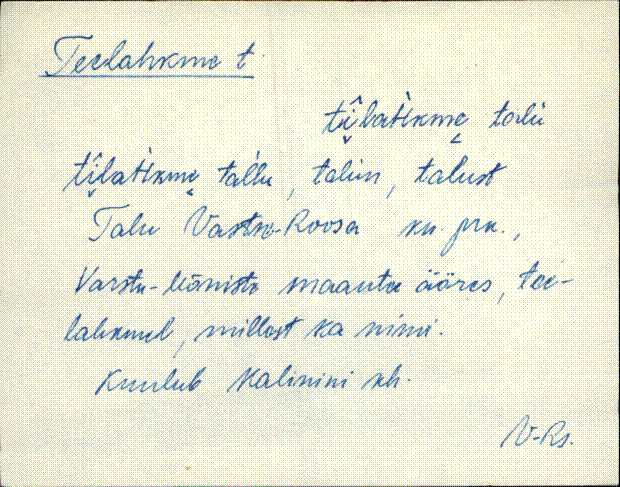 Teelahkme t.
tîlatìkme talù
tîlatìkme tal'lu, talun, talust
Talu Vastse-Roosa kü. pra.,
Varstu-Mõniste maantee ääres, tee-
lahkmel, millest ka nimi.
Kuulub Kalinini kh.
V-Rs.